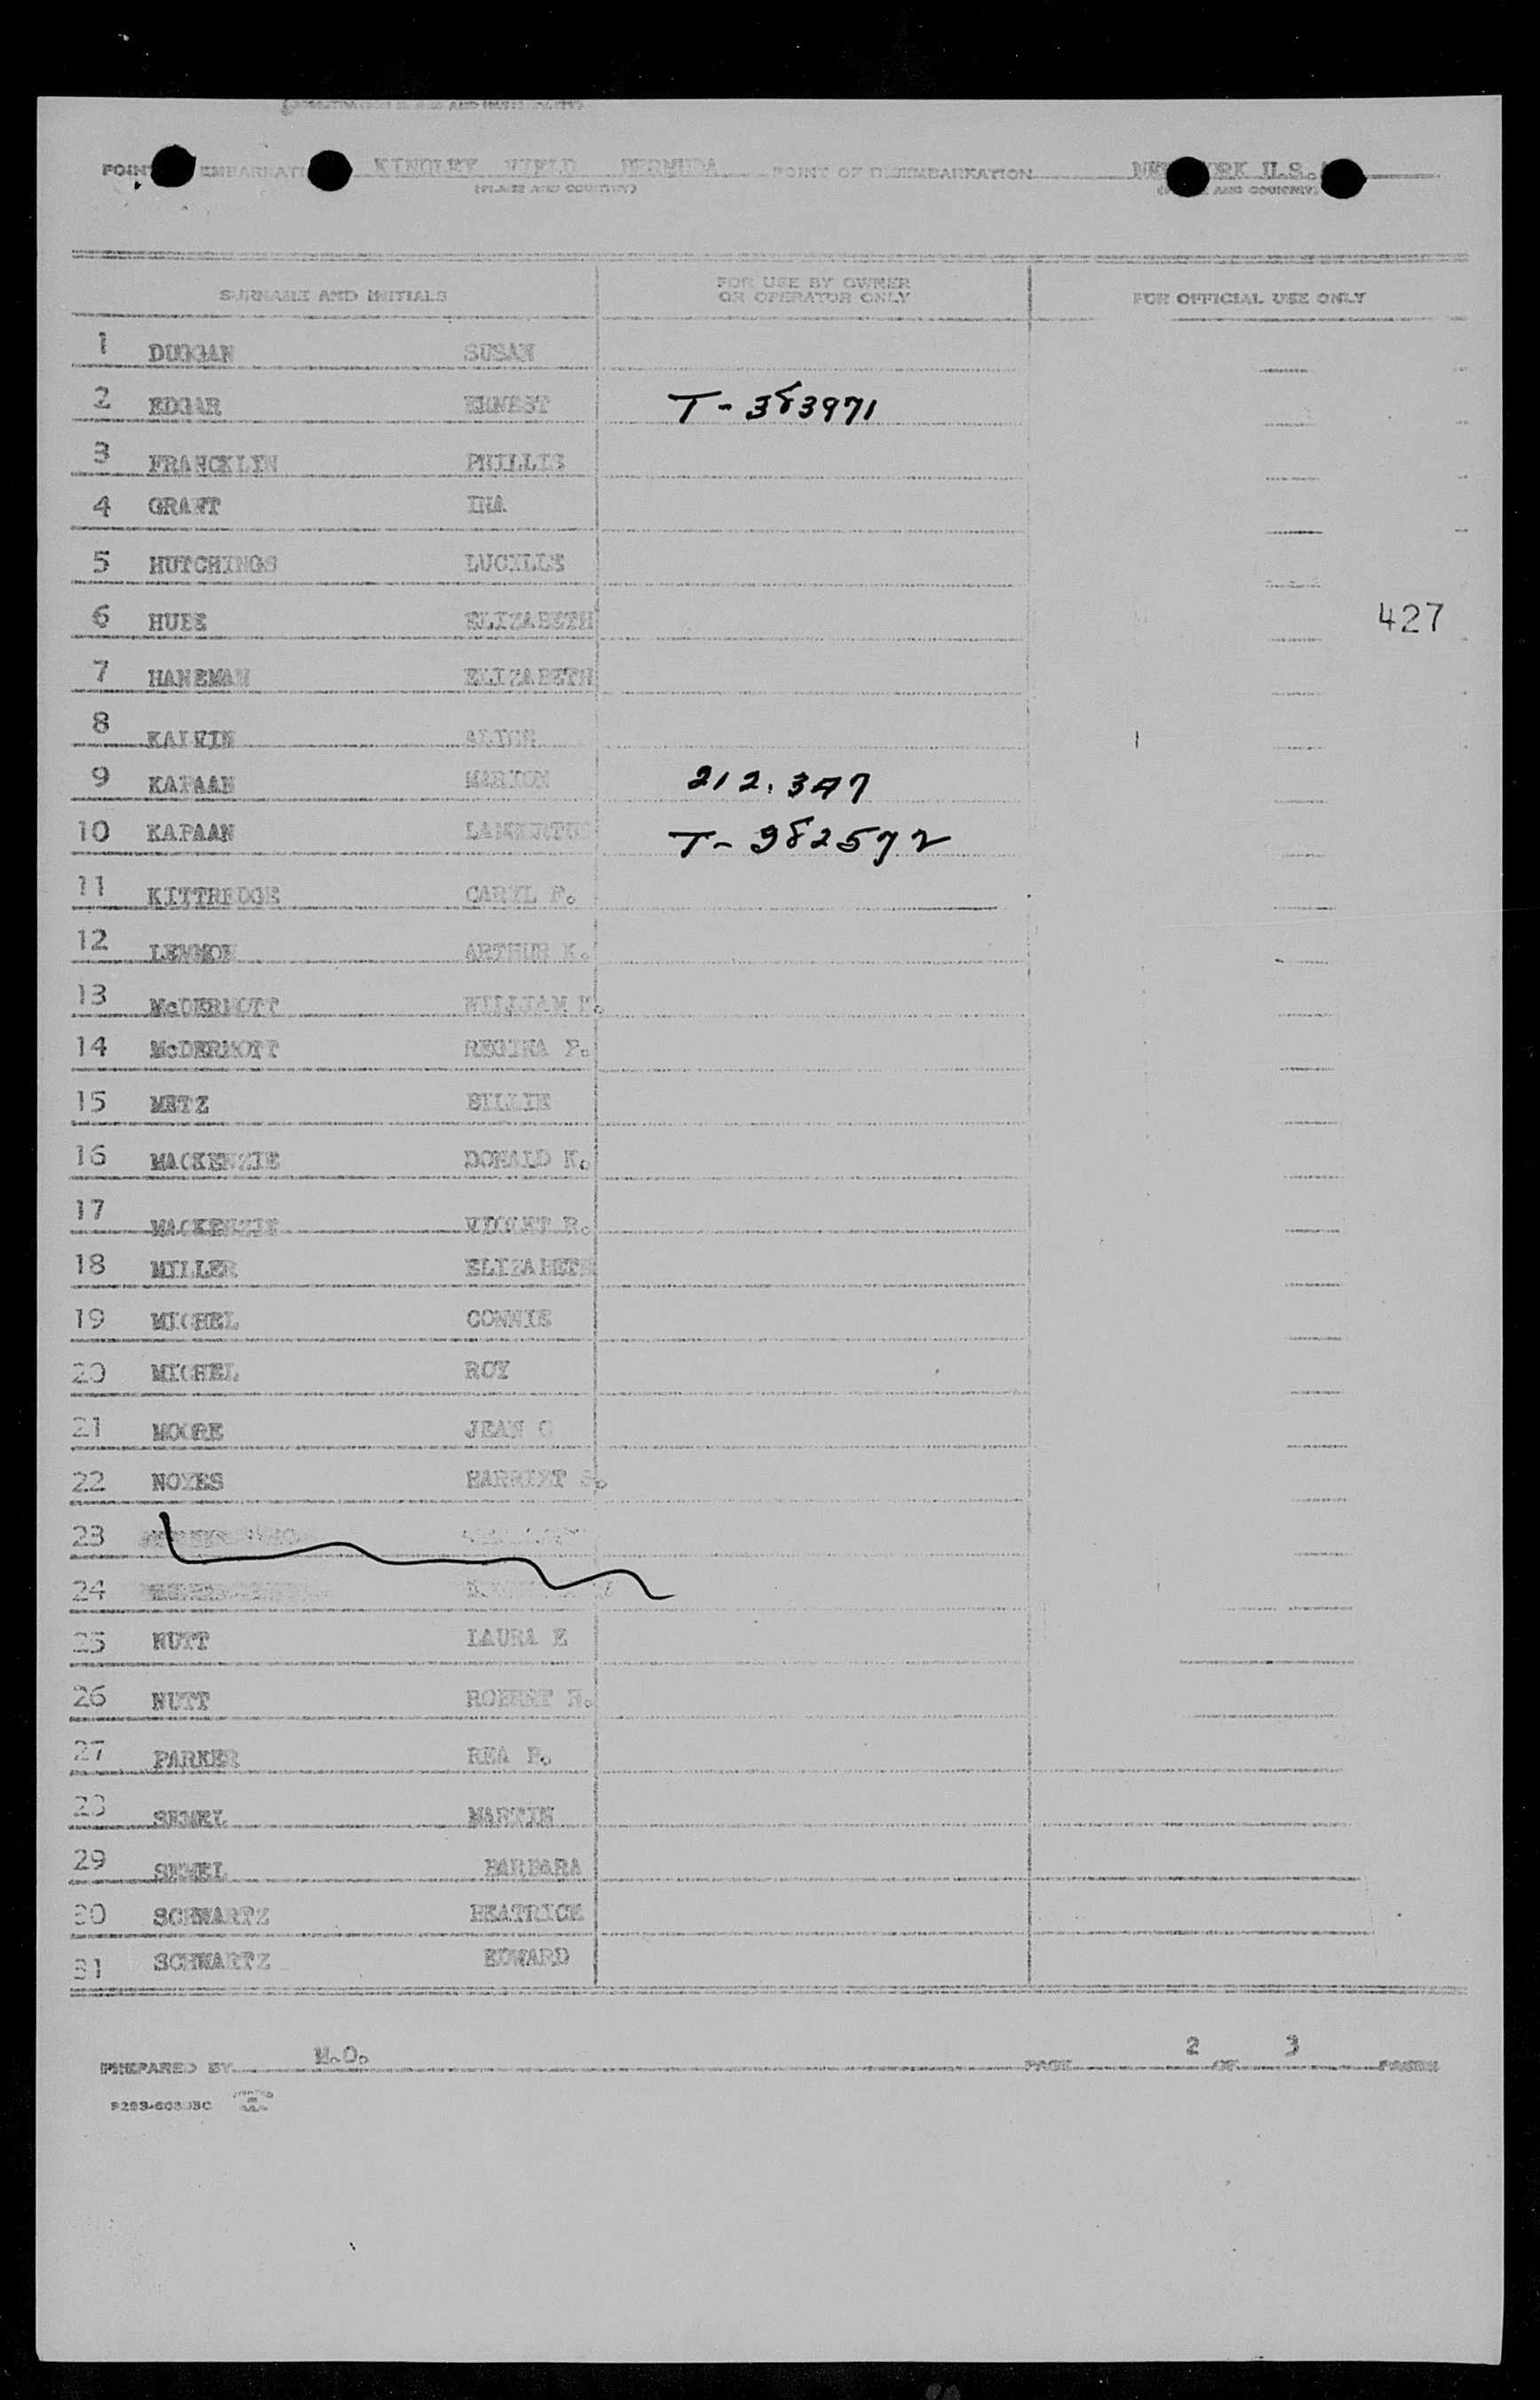 POINT EMBARKATI KINDLEY FIELD BERMUDA POINT OF DISEMBARKATION NE ORK U.S.
(PLACE AND COUNTRY) AND COUNTRY)
SURNAME AND INITIALS FOR USE BY OWNER OR OPERATOR ONLY FOR OFFICIAL USE ONLY
1 DUGGAN SUSAN
2 EDGAR ERNEST T-383971
3 FRANCKLIN PHILLIS
4 GRANT INA
5 HUTCHINGS LUCILLE
6 ELIZABETH 427
7 HANEMAN ELIZABETH
8 KALVIN
9 KAPAAN MARION 212.347
10 KAPAAN LAMBERTUS T-982572
11 KITTREDGE CARYL F.
12 LEMMON ARTHUR K.
13 McDERMOTT WILLIAM
14 McDERMOTT REGINA P.
15 METZ BILLIE
16 MACKENZIE DONALD K.
17 MACKENZIE VIOLET R.
18 MILLER ELIZABETH
19 MICHEL CONNIE
20 MICHEL ROY
21 MOORE JEAN C
22 NOYES HARRIET S.
23
24
25 NUTT LAURA E
26 NUTT ROBERT N.
27 PARKER REA P.
28 SEMEL MARTIN
29 SEMEL BARBARA
30 SCHWARTZ BEATRICE
31 SCHWARTZ EDWARD
PREPARED BY M.O. PAGE 2 OF 3 PAGES